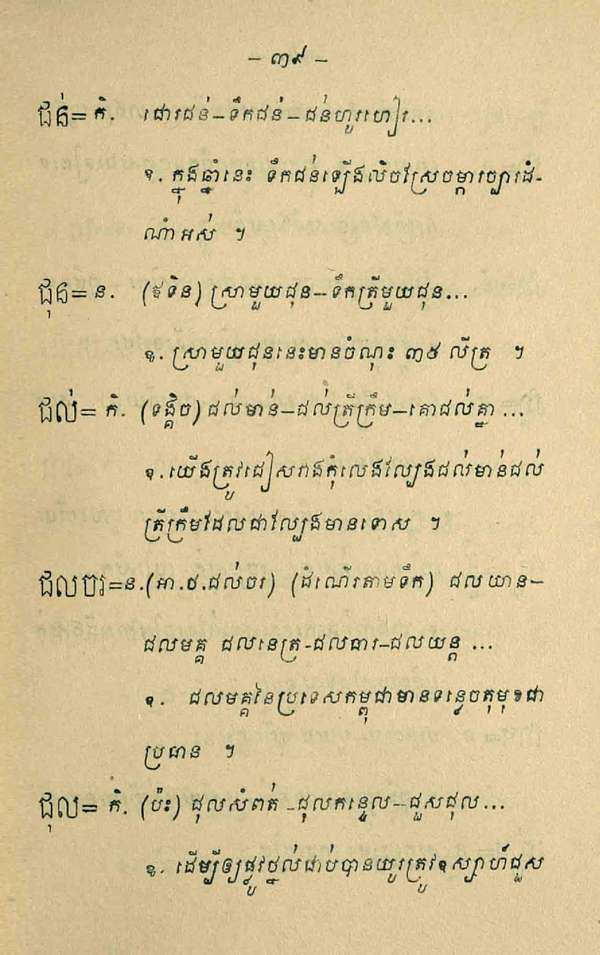 - ៣៩ -
ជន់= កិ. ជោរជន់-ទឹកជន់-ជន់ហូរហៀរ...
ឧ. ក្នុងឆ្នាំនេះ ទឹកជន់ឡើងលិចស្រែចម្ការច្បារដំ-
ណាំអស់ ។
ជុន= ន. (ឪទិន) ស្រាមួយជុន-ទឹកត្រីមួយជុន...
ឧ. ស្រាមួយជុននេះមានចំណុះ ៣៥ លីត្រ ។
ជល់= កិ. (ទង្គិច) ជល់មាន់-ជល់ត្រីក្រឹម-គោជល់គ្នា ...
ឧ. យើងត្រូវជៀសវាងកុំលេងល្បែងជល់មាន់ជល់
ត្រីក្រឹមដែលជាល្បែងមានទោស ។
ជលចរ=ន.(អា.ថ.ជល់ចរ) (ដំណើរតាមទឹក) ជលយាន-
ជលមគ្គ ជលនេត្រ-ជលធារ-ជលយន្ត ...
ឧ. ជលមគ្គនៃប្រទេសកម្ពុជាមានទន្លេចតុមុខជា
ប្រធាន ។
ជុល= កិ. (ប៉ះ) ជុលសំពត់ -ជុលកន្ទេល-ជួសជុល...
ឧ. ដើម្បីឲ្យផ្លូវថ្នល់ជាប់បានយូរត្រូវឧស្សាហ៍ជួស